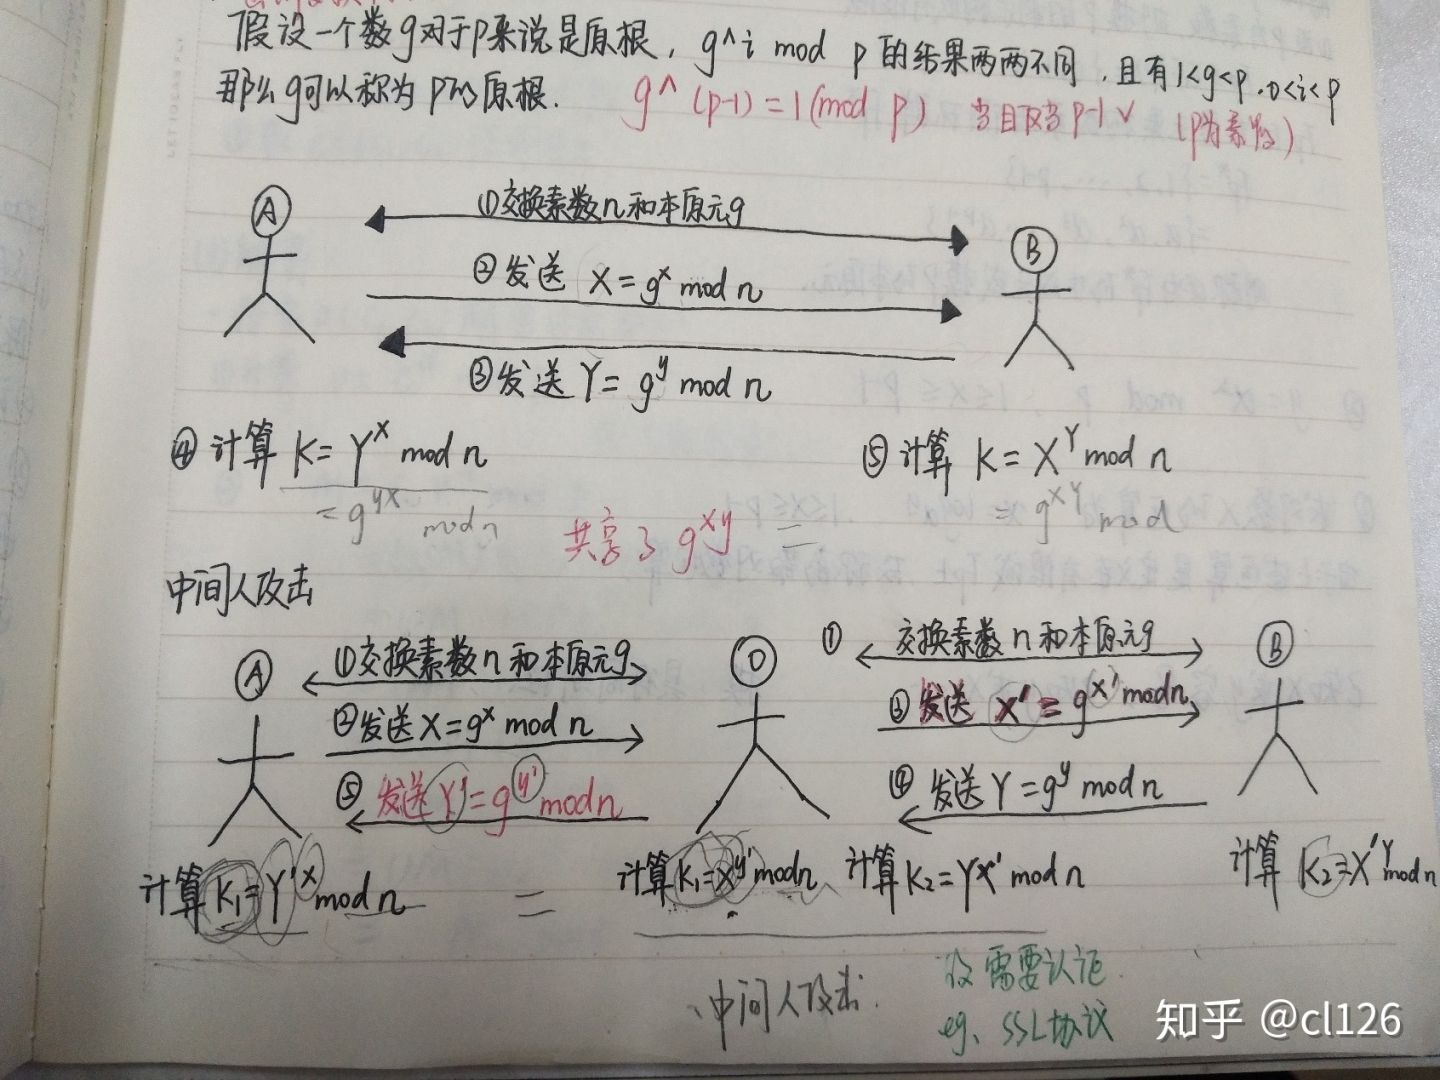 假设一个数g对于p来说是原根，g^i mod p 的结果两两不同，且有1<g<p，0<i<p
那么g可以称为p的原根.
g^(p-1)=1(mod p) 当且仅当p-1√ (p为素数)
A
B
①交换素数n和本原元g
②发送 X=g^x mod n
③发送 Y=g^y mod n
④计算 K=Y^x mod n
=g^yx mod n
⑤计算 K=X^Y mod n
=g^xy mod
共享了g^xy
=
中间人攻击
A
O
B
①交换素数n和本原元g
① 交换素数n和本原元g
②发送X=g^x mod n
③发送 X'=g^x' mod n
⑤发送Y'=g^y' mod n
④发送Y=g^y mod n
计算K₁=Y'^x mod n
=
计算K₁=X^y' mod n
计算K₂=Y^x' mod n
计算 K₂=X'^Y mod n
中间人攻击.
需要认证.
eg、SSL协议
知乎 @cl126